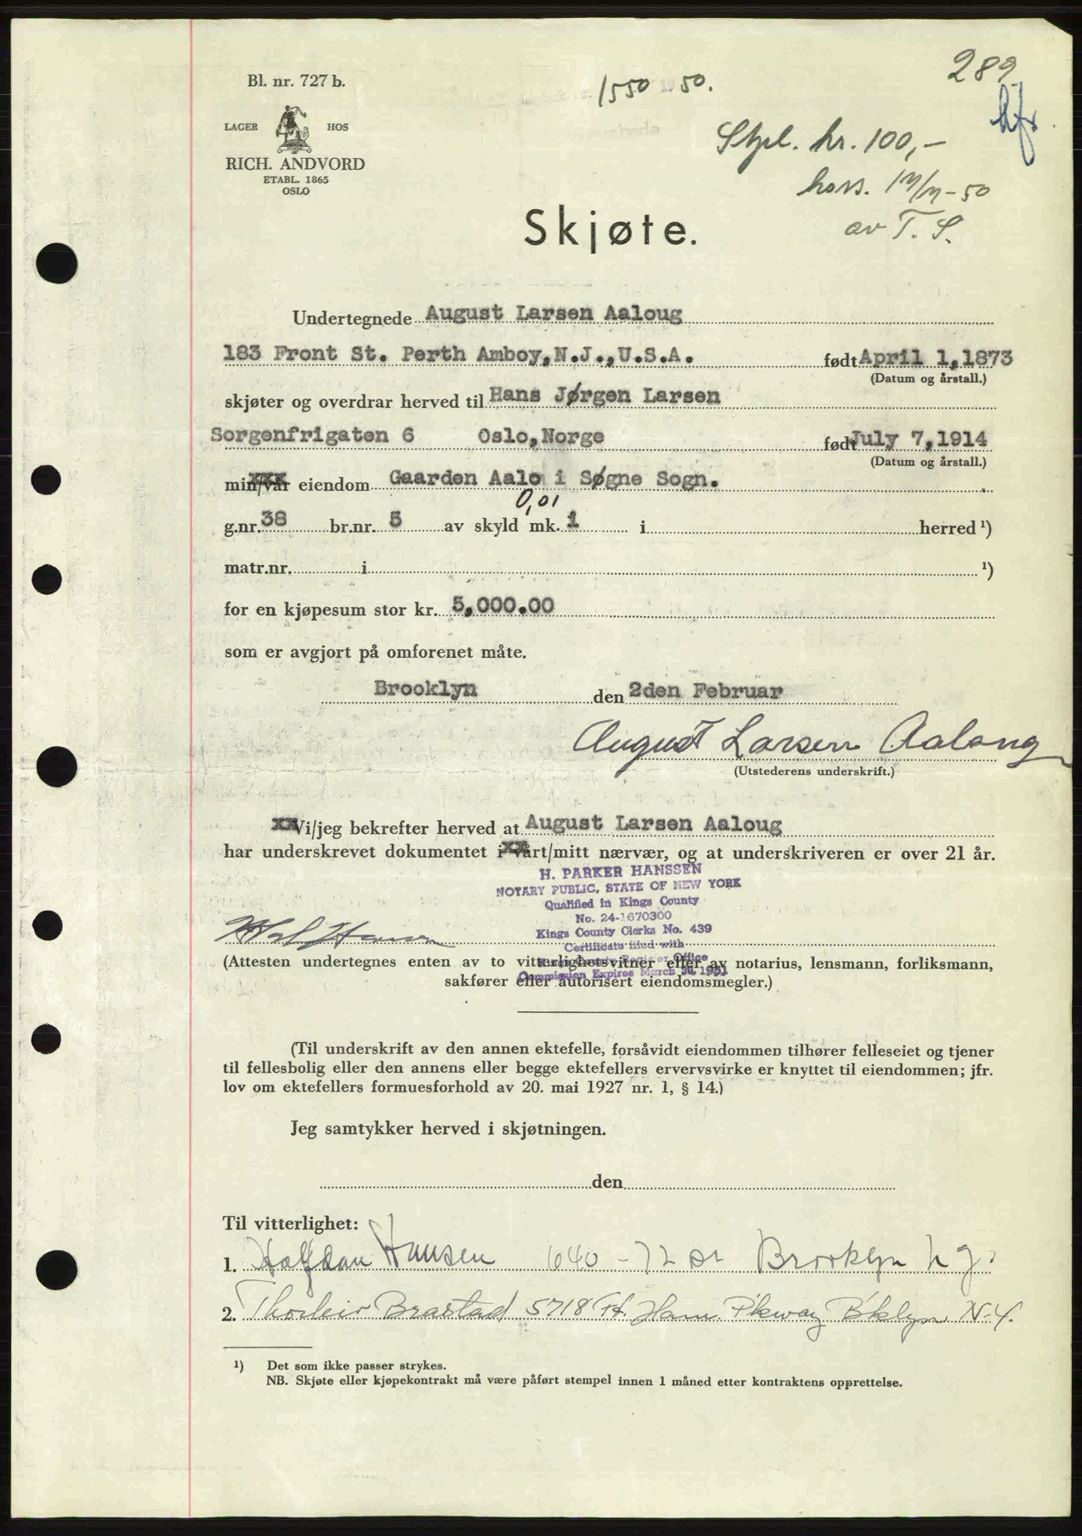 Bl. nr. 727 b.
LAGER HOS
RICH. ANDVORD
ETABL. 1865
OSLO
1550 50.
289
hfr.
Stpl. kr. 100,-
av T. S.
Skjøte.
Undertegnede August Larsen Aaloug
183 Front St. Perth Amboy, N.J., U.S.A. født April 1, 1873
(Datum og årstall.)
skjøter og overdrar herved til Hans Jørgen Larsen
Sorgenfrigaten 6 Oslo, Norge født July 7, 1914
(Datum og årstall.)
min/vår eiendom Gaarden Aalo i Søgne Sogn.
0,01
g.nr. 38 br.nr. 5 av skyld mk. 1 i herred ¹)
matr.nr. i ¹)
for en kjøpesum stor kr. 5,000.00
som er avgjort på omforenet måte.
Brooklyn den 2den Februar
August Larsen Aaloug
(Utstederens underskrift.)
xxVi/jeg bekrefter herved at August Larsen Aaloug
har underskrevet dokumentet i vårt/mitt nærvær, og at underskriveren er over 21 år.
H. PARKER HANSSEN
NOTARY PUBLIC, STATE OF NEW YORK
Qualified in Kings County
No. 24-1670300
Kings County Clerks No. 439
Certificate filed with
Commission Expires March 30, 1951
(Attesten undertegnes enten av to vitterlighetsvitner eller av notarius, lensmann, forliksmann,
sakfører eller autorisert eiendomsmegler.)
(Til underskrift av den annen ektefelle, forsåvidt eiendommen tilhører felleseiet og tjener
til fellesbolig eller den annens eller begge ektefellers ervervsvirke er knyttet til eiendommen; jfr.
lov om ektefellers formuesforhold av 20. mai 1927 nr. 1, § 14.)
Jeg samtykker herved i skjøtningen.
den
Til vitterlighet:
1. Halfdan Hansen 640 - 72 St Brooklyn N.Y.
2. Thorleiv Brastad 5718 Ft. Ham. P'kway B'klyn N-Y.
¹) Det som ikke passer strykes.
NB. Skjøte eller kjøpekontrakt må være påført stempel innen 1 måned etter kontraktens opprettelse.